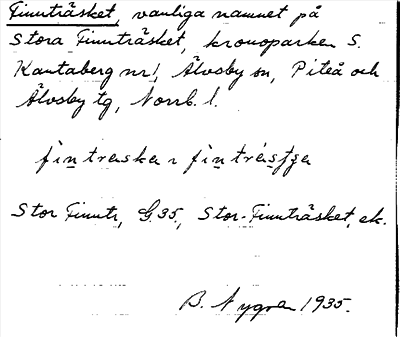 Finnträsket, vanliga namnet på
Stora Finnträsket, kronoparken S.
Kantaberg nr 1, Älvsby sn, Piteå och
Älvsby tg, Norrb. l.
fintreska l fintrésſʒa
Stor Finntr, G.35., Stor-Finnträsket, ek.
B. Nygren 1935.